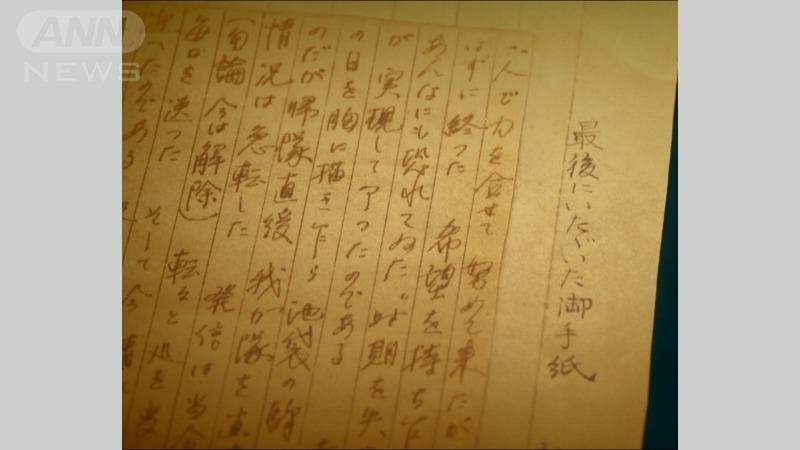 ANN
NEWS
最後にいたゞいた御手紙
二人で力を合せて 努めて来たが
はずに終った 希望を持ち乍
あんなにも恐れてゐた
が 実現して了つたのである
の日を胸に描き乍ら 池袋の駅
のだが帰隊直後 我が隊を直
情況は急転した 発信は当分
(勿論 今は解除) 転々と 処を変
毎日を送った そして今
つたのである